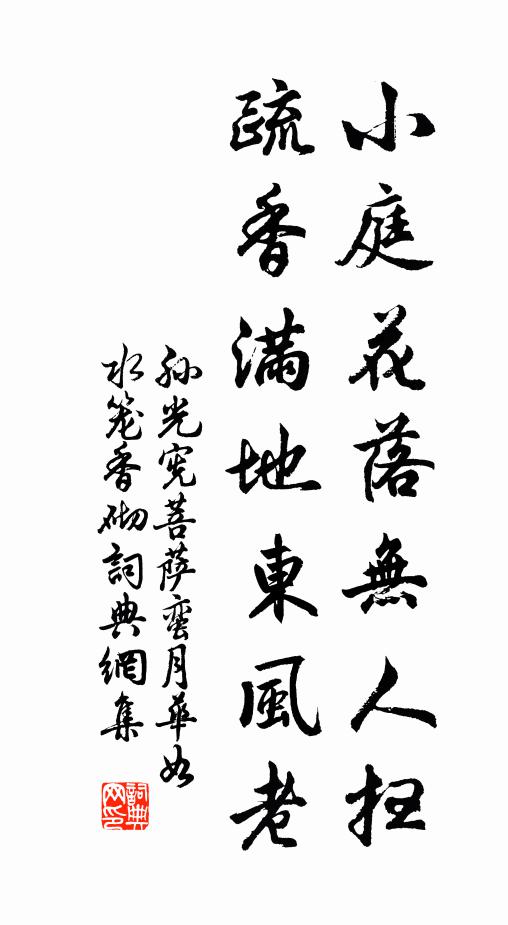 小庭花落無人扫
疏香滿地東風老
孙光宪菩萨蛮月華如
水笼香砌詞典網集
詞典网印